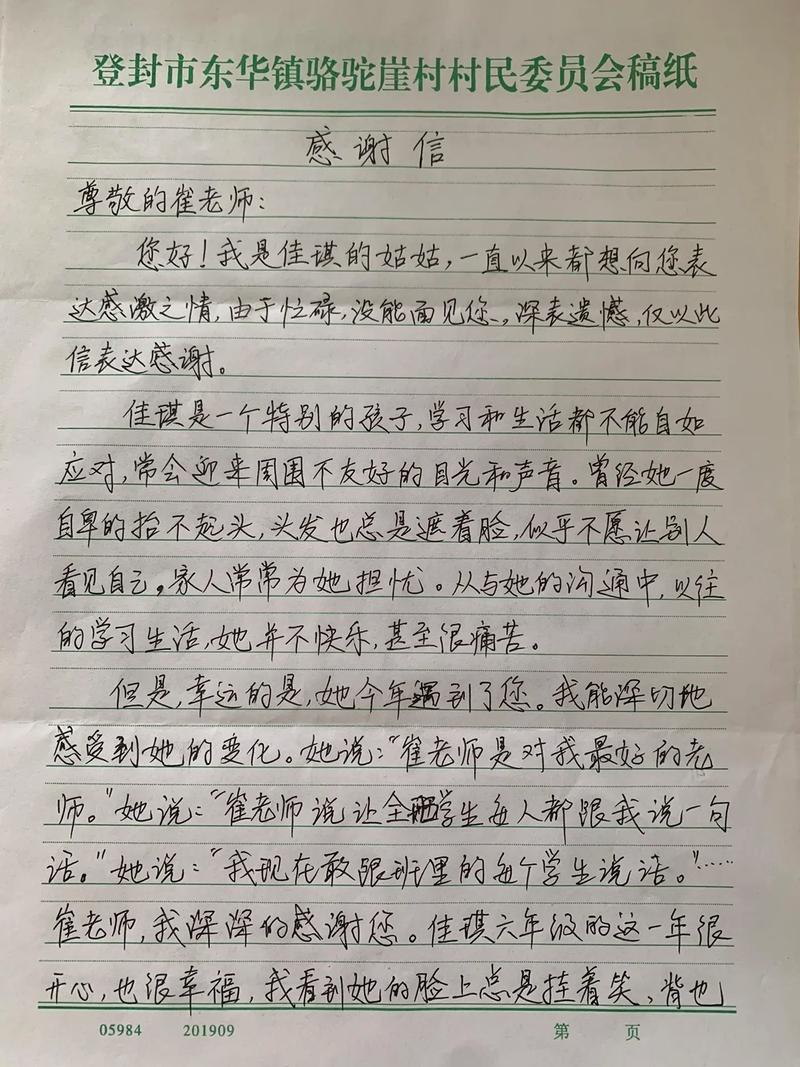 登封市东华镇骆驼崖村村民委员会稿纸
感谢信
尊敬的崔老师:
您好!我是佳琪的姑姑,一直以来都想向您表
达感激之情,由于忙碌,没能面见您、,深表遗憾,仅以此
信表达感谢。
佳琪是一个特别的孩子,学习和生活都不能自如
应对,常会迎来周围不友好的目光和声音。曾经她一度
自卑的抬不起头,头发也总是遮着脸,似乎不愿让别人
看见自己。家人常常为她担忧。从与她的沟通中,以往
的学习生活,她并不快乐,甚至很痛苦。
但是,幸运的是,她今年遇到了您。我能深切地
感受到她的变化。她说:“崔老师是对我最好的老
师。”她说:“崔老师说让全班学生每人都跟我说一句
话。”她说:“我现在敢跟班里的每个学生说话。”……
崔老师,我深深的感谢您。佳琪六年级的这一年很
开心,也很幸福,我看到她的脸上总是挂着笑、背也
05984 201909 第 页